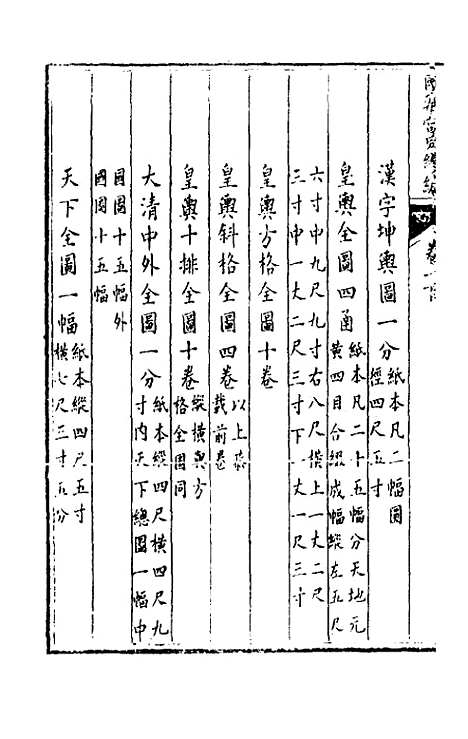 國朝宮史續編 卷一百
漢字坤輿圖一分紙本凡二幅圖
經四尺五寸
皇輿全圖四函紙本凡二十五幅分天地元
黃四目合綴成幅縱左五尺
六寸中九尺九寸右八尺橫上一丈二尺
三寸中一丈二尺三寸下一丈一尺三寸
皇輿方格全圖十卷
皇輿斜格全圖四卷以上恭
載前卷
皇輿十排全圖十卷縱橫與方
格全圖同
大清中外全圖一分紙本縱四尺橫四尺九
寸內天下總圖一幅中
國圖十五幅外
國圖十五幅
天下全圖一幅紙本縱四尺五寸
橫七尺三寸五分